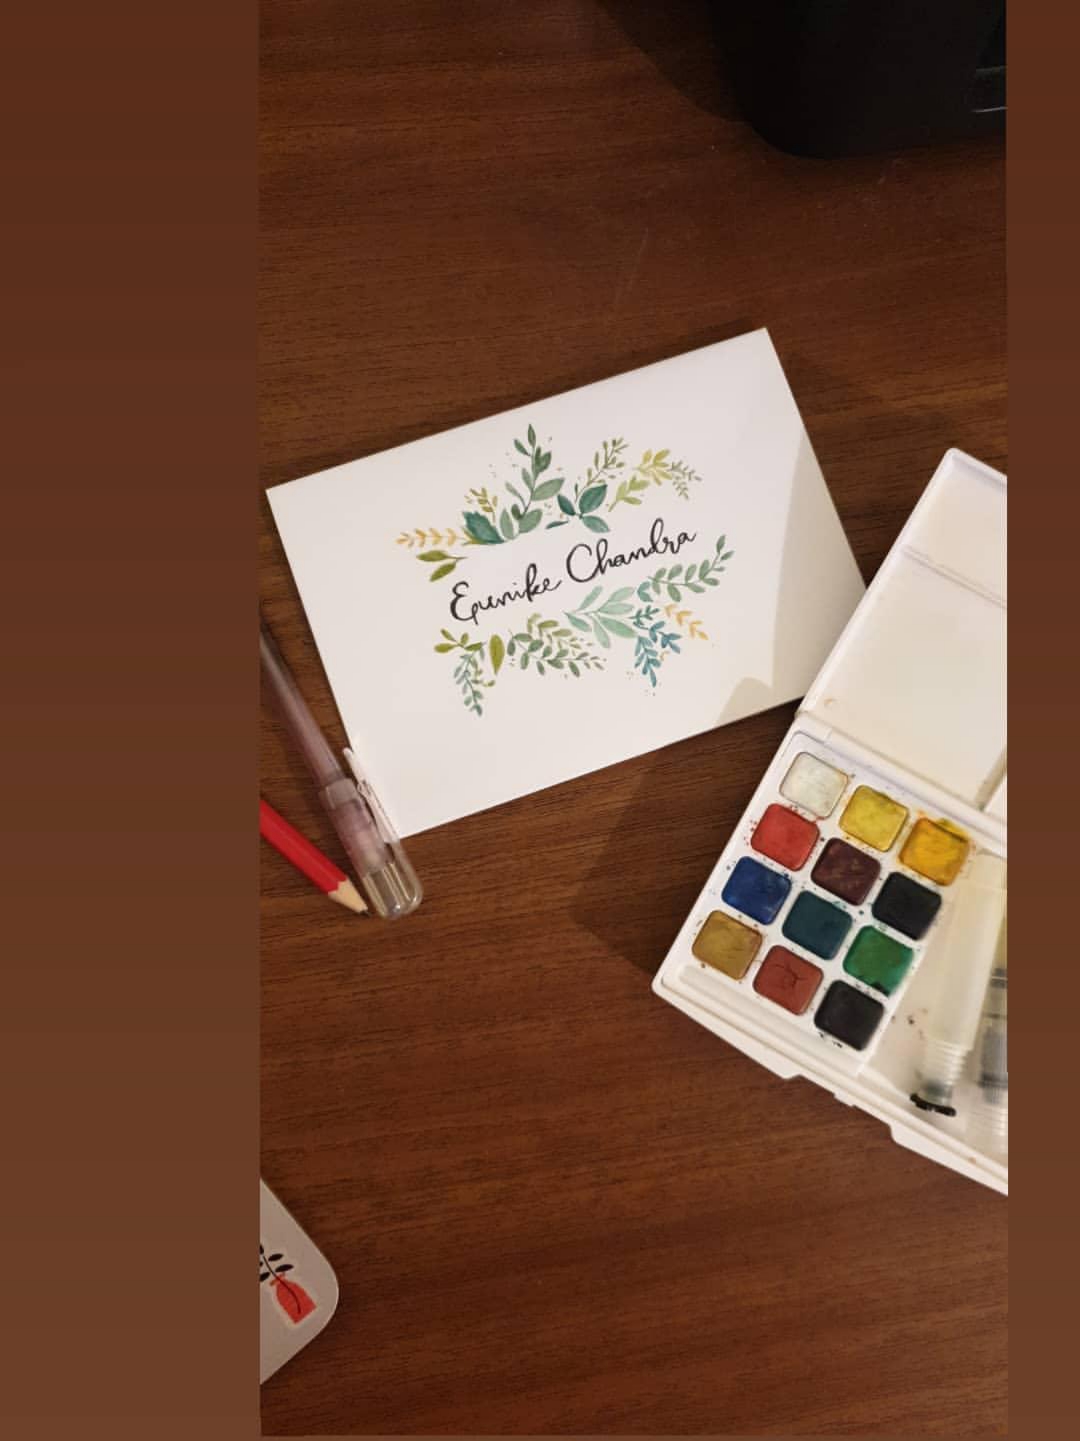 Eunike Chandra